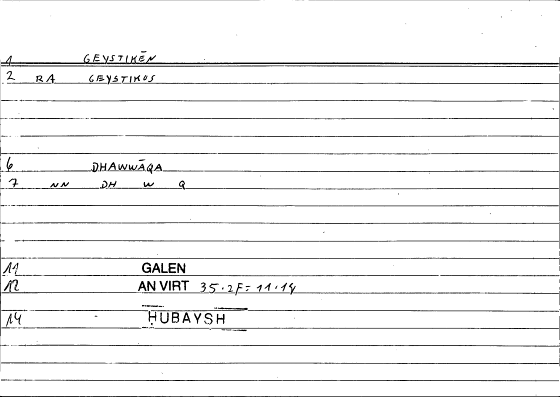 1 GEYSTIKĒN
2 RA GEYSTIKOS
6 DHAWWĀQA
7 NN DH W Q
11 GALEN
12 AN VIRT 35.2F = 11.14
14 ḤUBAYSH